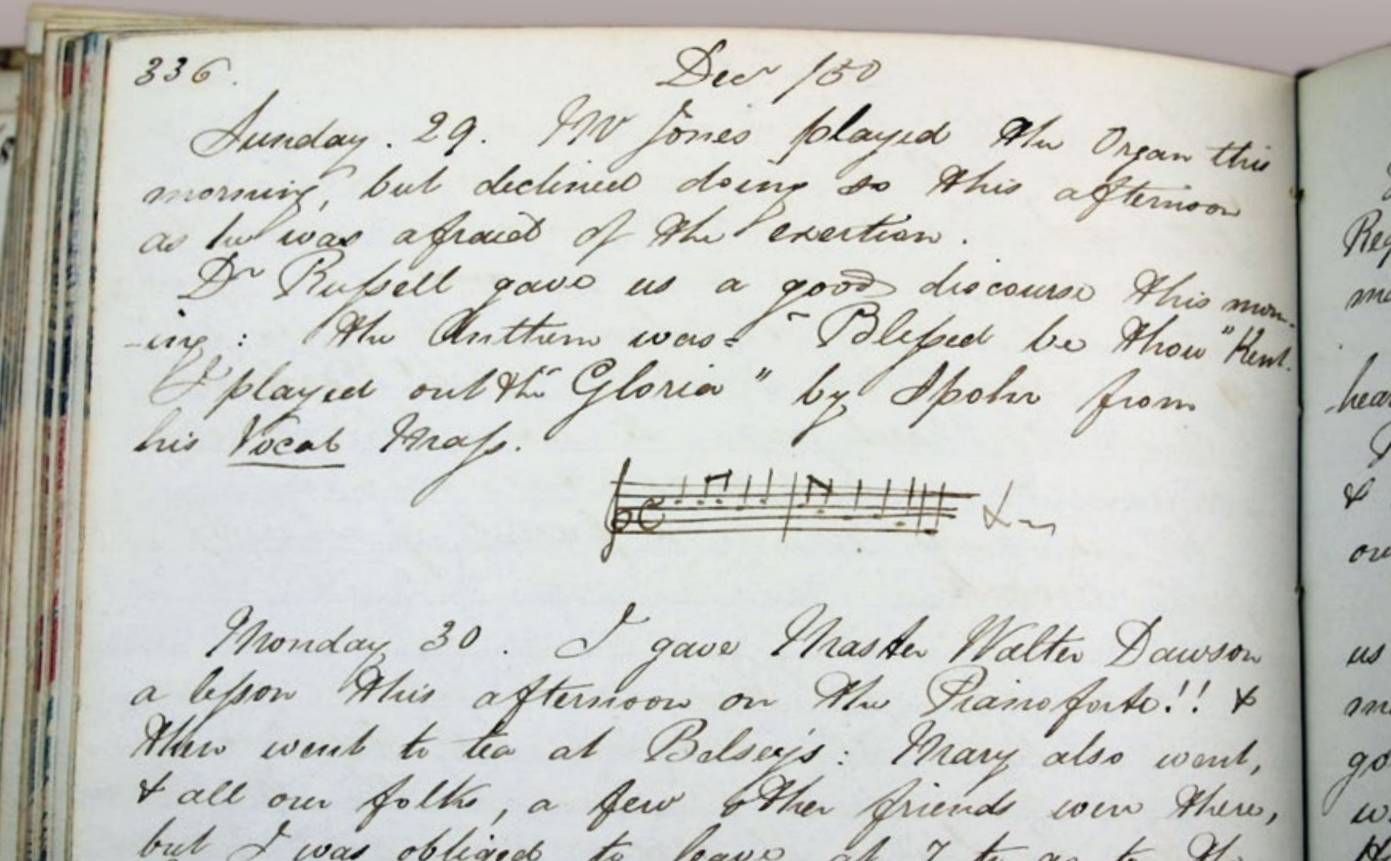 336. Decr /50
Sunday. 29. Mr Jones played the Organ this
morning, but declined doing so this afternoon
as he was afraid of the exertion.
Dr Rufsell gave us a good discourse this morn-
-ing: the Anthem was= "Blefsed be thou" Kent.
I played out the "Gloria" by Spohr from
his Vocal Mafs.
Monday 30. I gave Master Walter Dawson
a lefson this afternoon on the Pianoforte!! &
then went to tea at Belsey's: Mary also went,
& all our folks, a few other friends were there,
but I was obliged to leave at 7 to go to the
Rep
me
hear
&
our
us
me
go
w